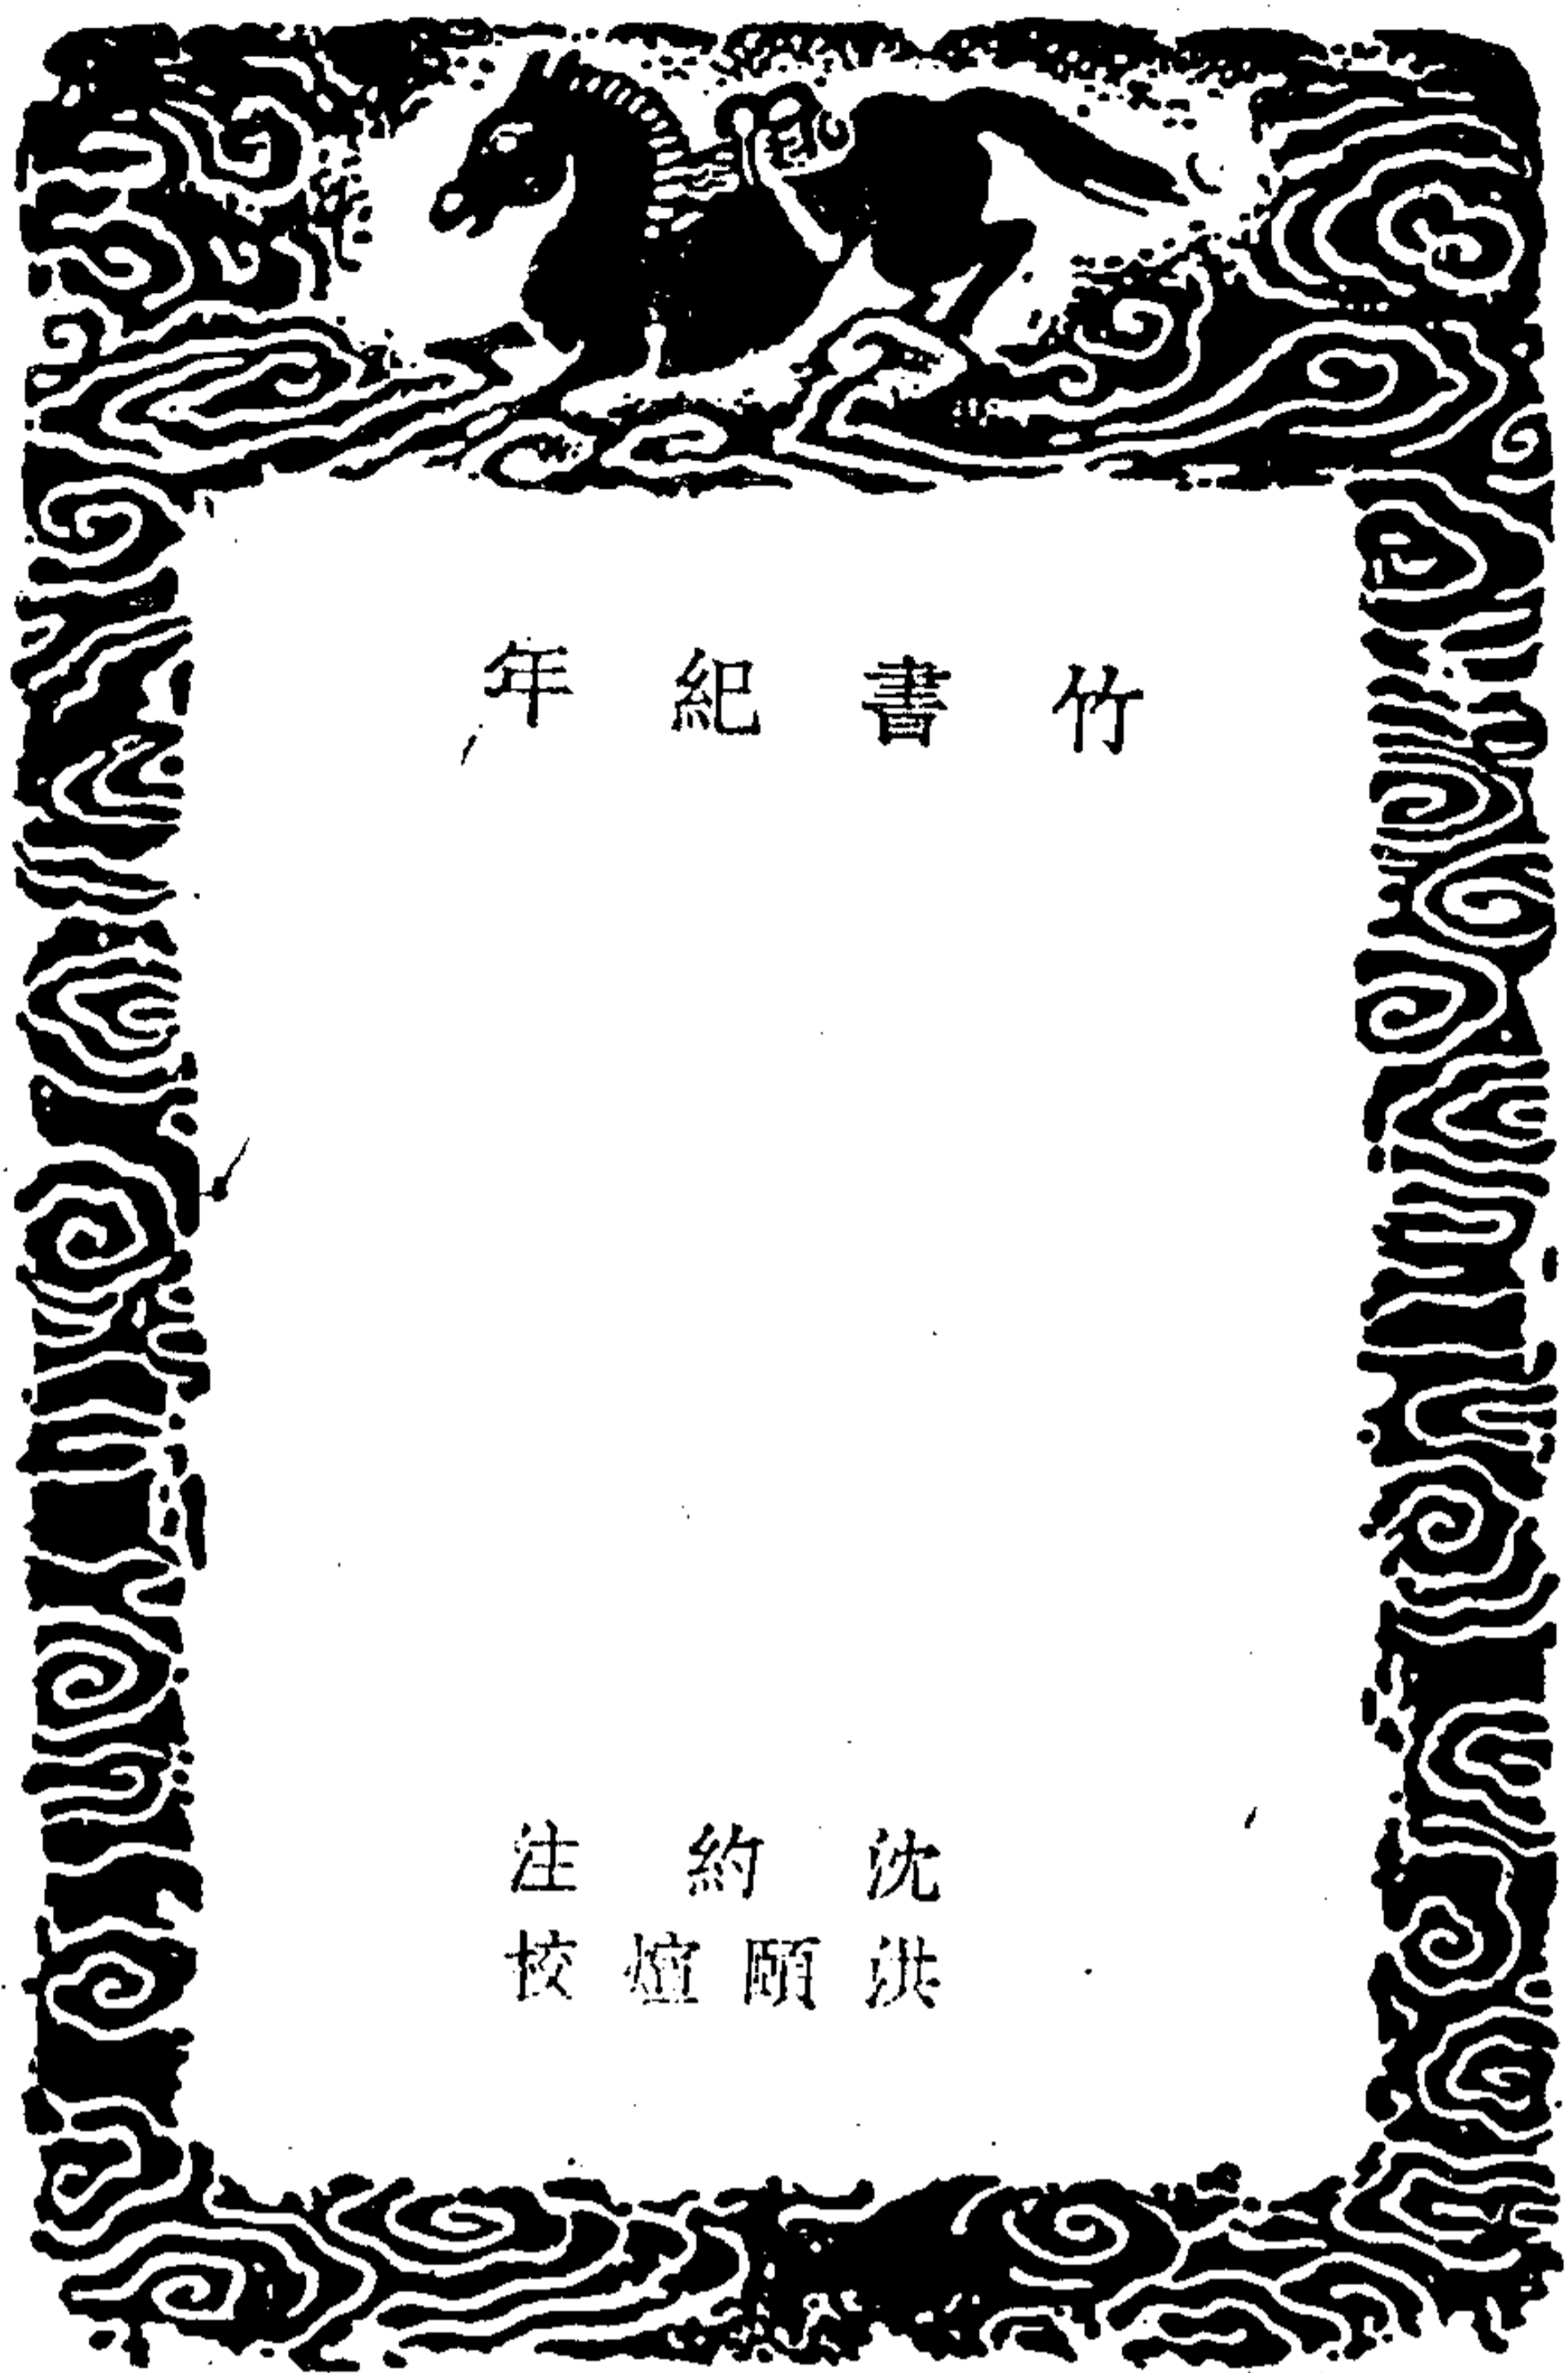 竹書紀年
沈約注
洪頤煊校